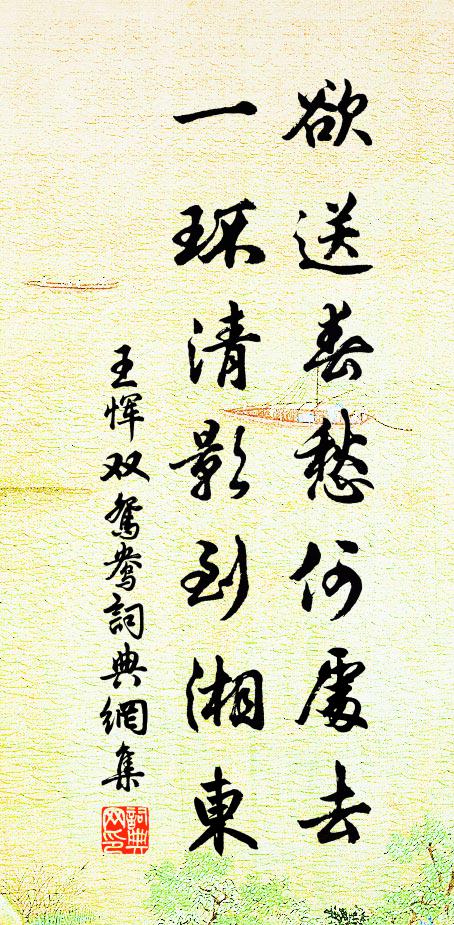 欲送春愁何處去
一环清影到湘東
王恽双鴛鴦詞典網集
詞典网印